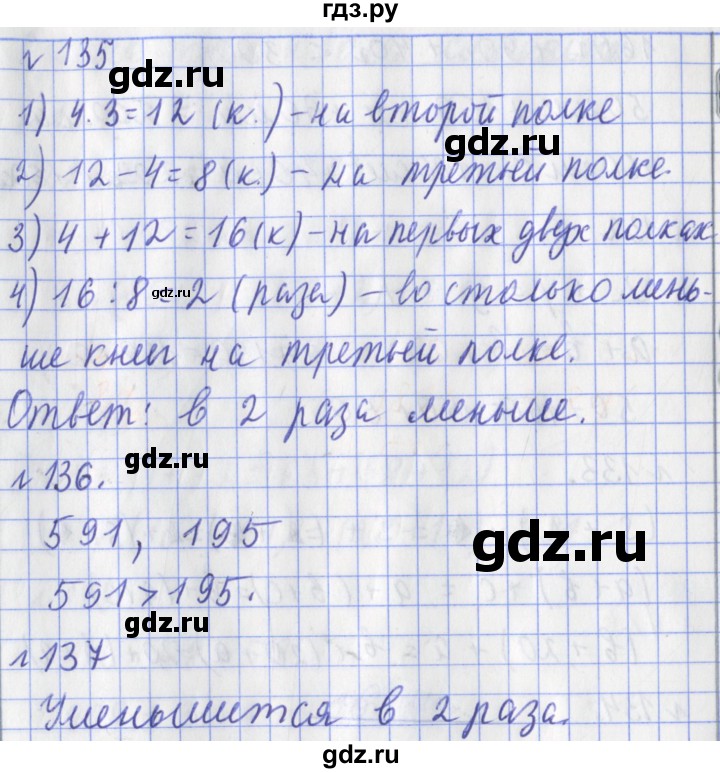 гдз.ру
№ 135
gdz.ru
1) 4·3=12 (к.) – на второй полке
gdz.ru
2) 12–4=8(к.) – на третьей полке.
3) 4+12=16(к) – на первых двух полках
4) 16:8=2 (раза) – во столько мень-
gdz.ru
ше книг на третьей полке.
Ответ: в 2 раза меньше.
gdz.ru
№ 136.
591, 195
gdz.ru
591>195.
gdz.ru
№ 137
Уменьшится в 2 раза.
gdz.ru